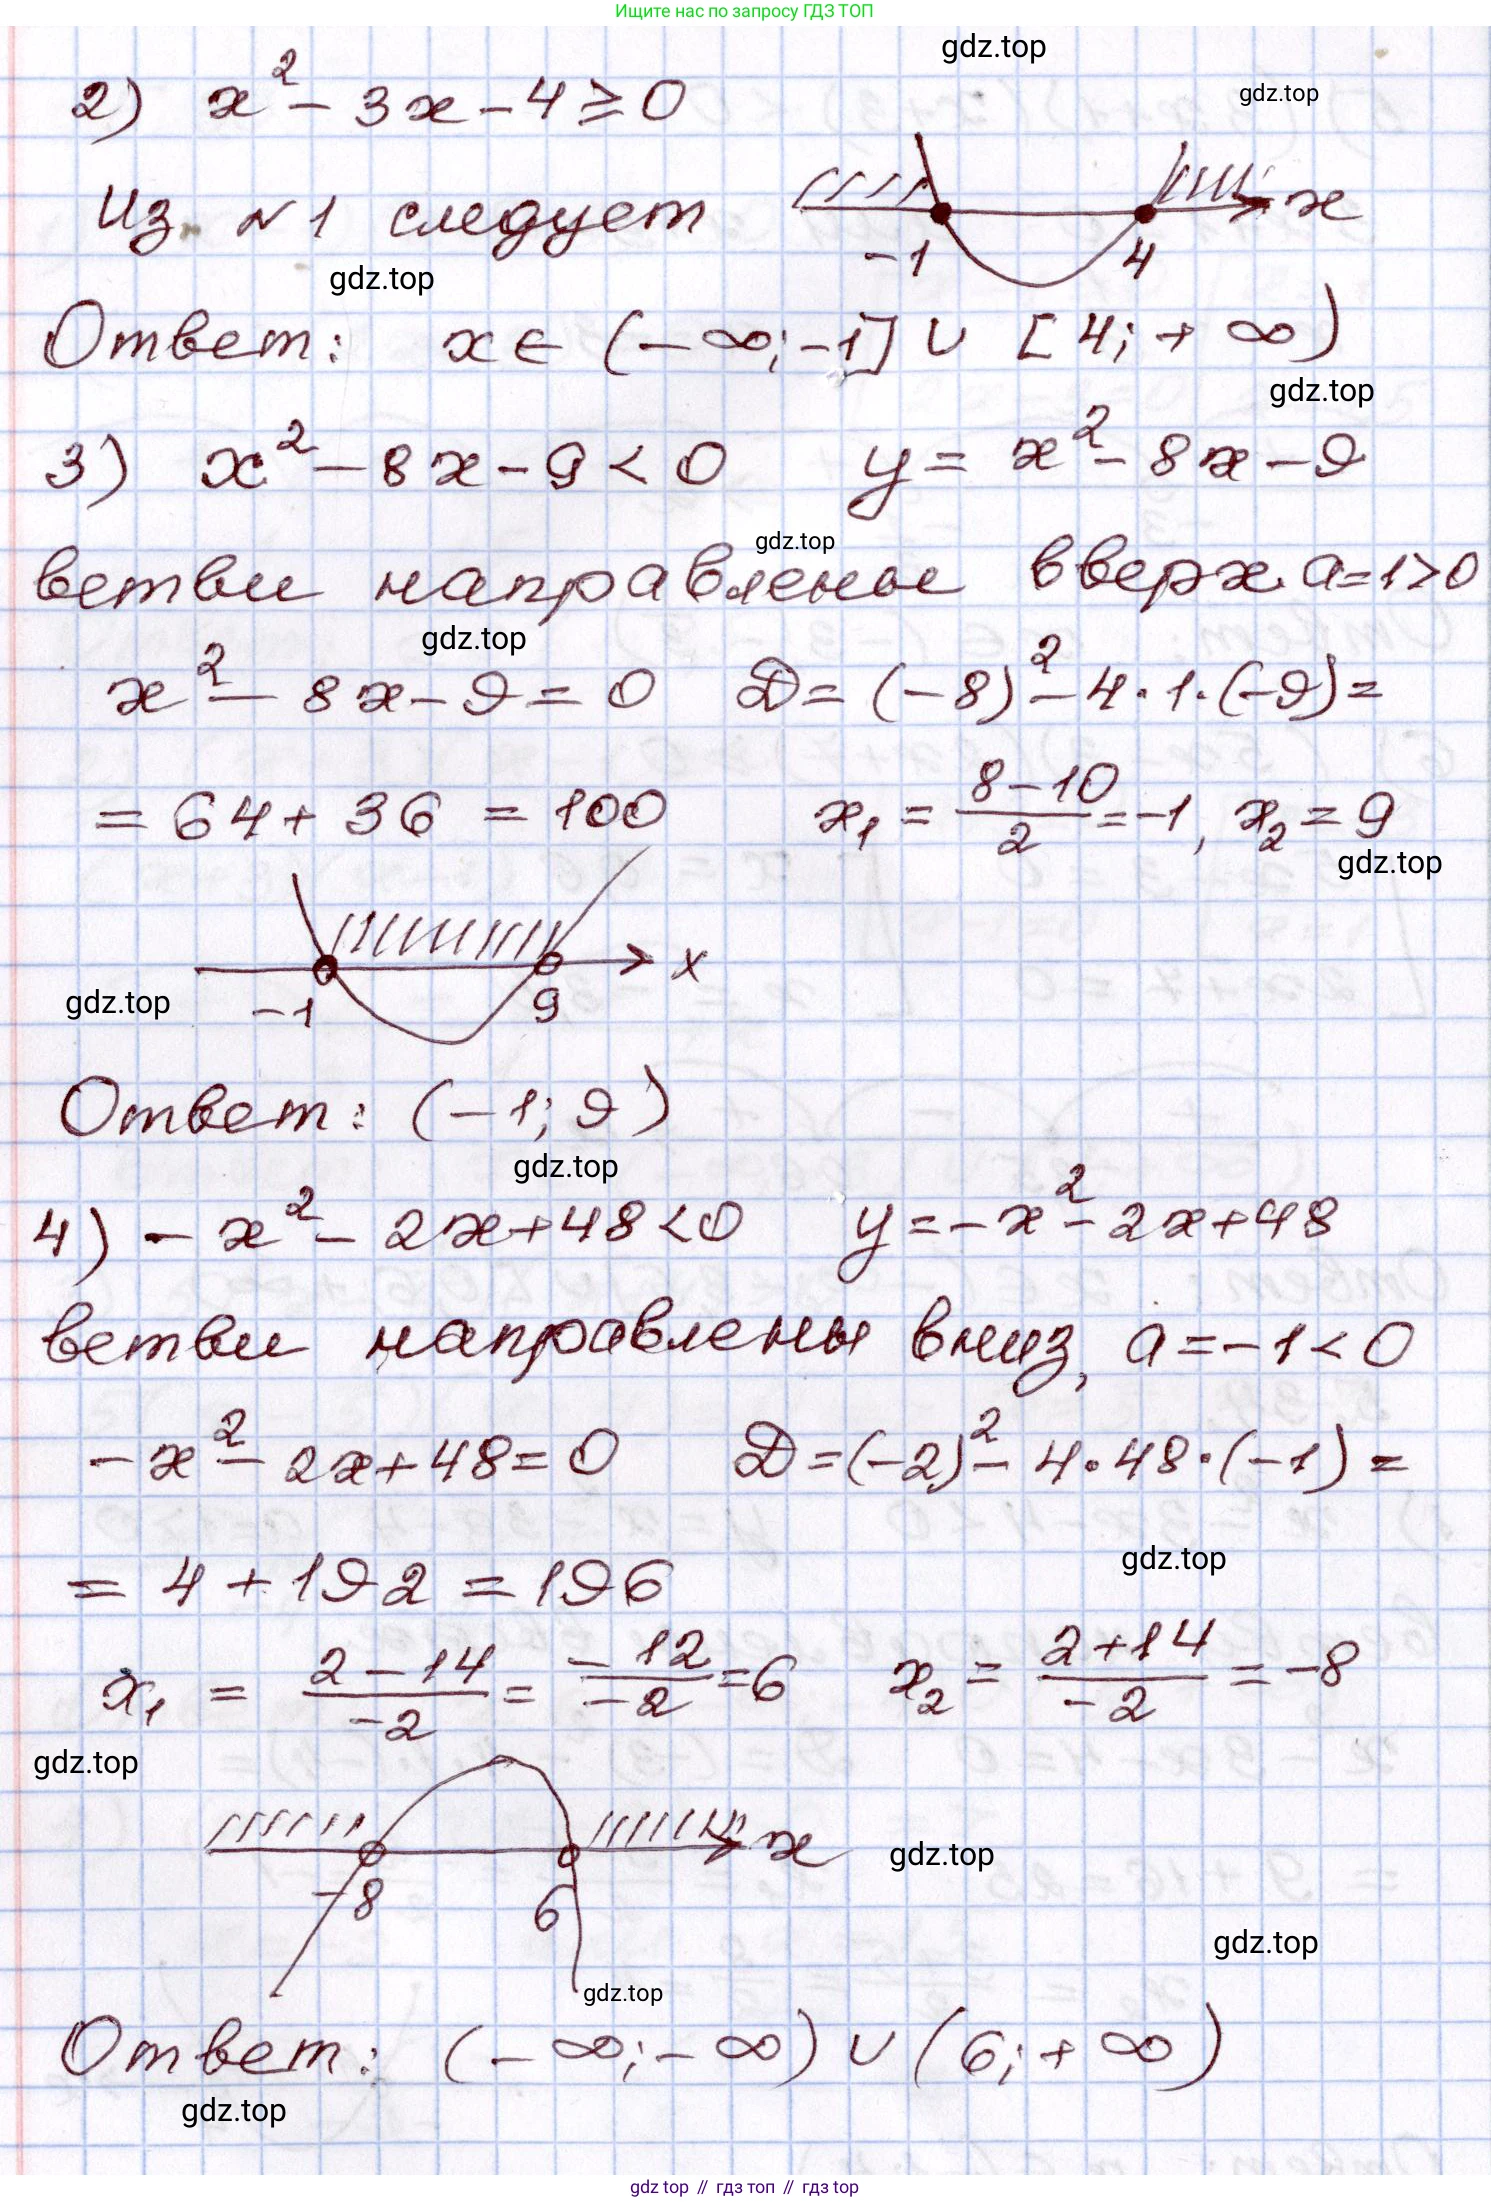 Ищите нас по запросу ГДЗ ТОП
gdz.top
2) x² - 3x - 4 ≥ 0
gdz.top
Из №1 следует
-1 4 x
gdz.top
Ответ: x ∈ (-∞; -1] ∪ [4; +∞)
gdz.top
3) x² - 8x - 9 < 0 y = x² - 8x - 9
gdz.top
ветви направлены вверх a=1>0
gdz.top
x² - 8x - 9 = 0 D = (-8)² - 4·1·(-9) =
= 64 + 36 = 100 x₁ = (8-10)/2 = -1, x₂ = 9
gdz.top
x
gdz.top
-1 9
Ответ: (-1; 9)
gdz.top
4) -x² - 2x + 48 < 0 y = -x² - 2x + 48
ветви направлены вниз, a = -1 < 0
-x² - 2x + 48 = 0 D = (-2)² - 4·48·(-1) =
gdz.top
= 4 + 192 = 196
x₁ = (2-14)/-2 = -12/-2 = 6 x₂ = (2+14)/-2 = -8
gdz.top
x
gdz.top
-8 6
gdz.top
gdz.top
Ответ: (-∞; -∞) ∪ (6; +∞)
gdz.top
gdz top // гдз топ // гдз top